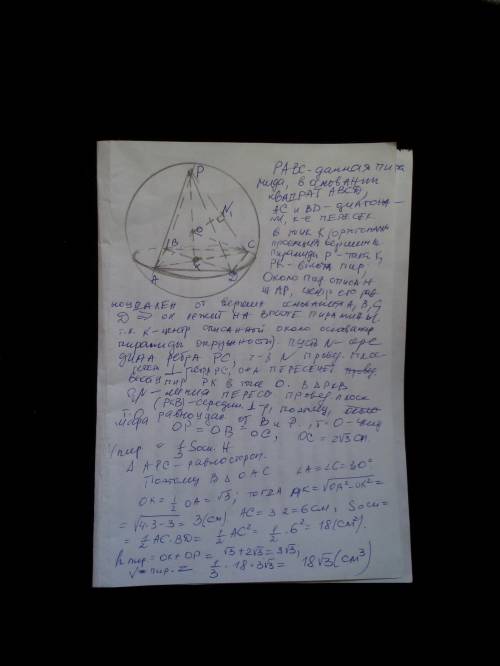 P
N
O
B
C
K
A
D
PABC - данная пира
мида, в основании
квадрат ABCD,
AC и BD - диагона-
ли, к-е пересек
в точк K (ортогональ
проекция вершины
пирамиды P - точка K,
PK - высота пир,
Около пир описан
шар, центр его рав
ноудален от вершин основания A, B, C
D => он лежит на высоте пирамиды
т.к. K - центр описанной около основания
пирамиды окружности). Пусть N - сере
дина ребра PC, N провед. плос
⊥ ребру PC, она пересечет
высоту пир PK в точке O. В Δ PKB
ON - линия пересеч провед плоск
(PKB) - середин. ⊥ поэтому,
т. O равноудал. от B и P, т. O - центр
шара OP = OB = OC; OC = 2√3 см.
V пир = 1/3 Sосн. H
Δ APC - равносторон.
Поэтому в Δ OAC ∠A = ∠C = 30°
OK = 1/2 OA = √3; тогда AK = √OA²-OK² =
= √4·3-3 = 3 (см) AC = 3·2 = 6 см, Sосн =
= 1/2 AC·BD = 1/2 AC² = 1/2 · 6² = 18 (см²).
h пир = OK + OP = √3 + 2√3 = 3√3,
V пир. = 1/3 · 18 · 3√3 = 18√3 (см³)